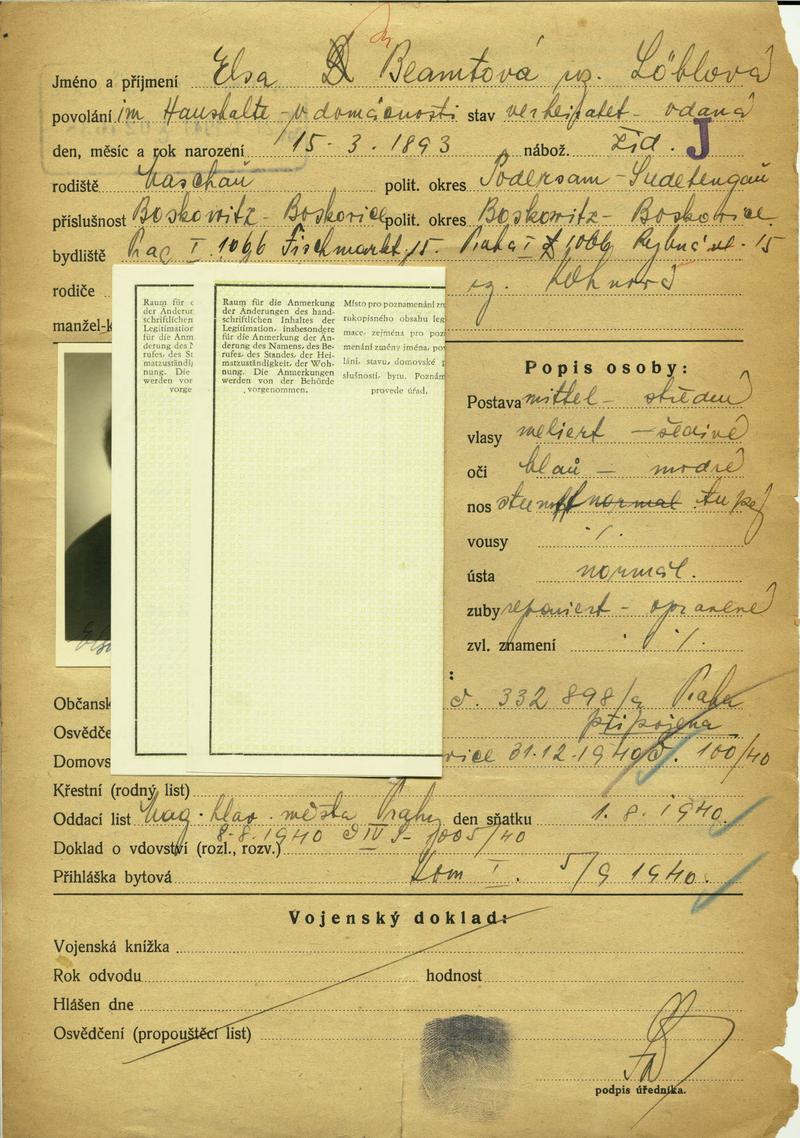 Jméno a příjmení Elsa Beamtová roz. Löblová
povolání im Haushalte - v domácnosti stav verheiratet - vdaná
den, měsíc a rok narození 15. 3. 1893 nábož. žid. J
rodiště Waschau polit. okres Podersam - Sudetengau
příslušnost Boskowitz - Boskovice polit. okres Boskowitz - Boskovice
bydliště Prag I. 1066 Fischmarkt 15. Praha I 1066 Rybná ul. 15
rodiče
manžel-k
Raum für d
der Änderun
schriftlichen
Legitimation
für die Anm
derung des N
rufes, des St
matzuständig
nung. Die
werden vor
vorge
Raum für die Anmerkung
der Änderungen des hand-
schriftlichen Inhaltes der
Legitimation, insbesondere
für die Anmerkung der Än-
derung des Namens, des Be-
rufes, des Standes, der Hei-
matzuständigkeit, der Woh-
nung. Die Anmerkungen
werden von der Behörde
vorgenommen.
Místo pro poznamenání zm
rukopisného obsahu leg
mace, zejména pro poz
menání změny jména, po
lání, stavu, domovské p
slušnosti, bytu. Poznám
provede úřad.
Popis osoby:
Postava mittel - střední
vlasy meliert - šedivé
oči blau - modré
nos stumpf normal tupý
vousy ./.
ústa normál.
zuby repariert - opravené
zvl. znamení ./.
Občansk č. 332 898/ Praha
připojena
Osvědče
Domovs vice 31.12.1940 č. 100/40
Křestní (rodný list)
Oddací list Mag. hlav. města Prahy den sňatku 1. 8. 1940.
8.8.1940 IV 1005/40
Doklad o vdovství (rozl., rozv.)
Přihláška bytová Kom I. 5/9 1940.
Vojenský doklad:
Vojenská knížka
Rok odvodu hodnost
Hlášen dne
Osvědčení (propouštěcí list)
podpis úředníka.